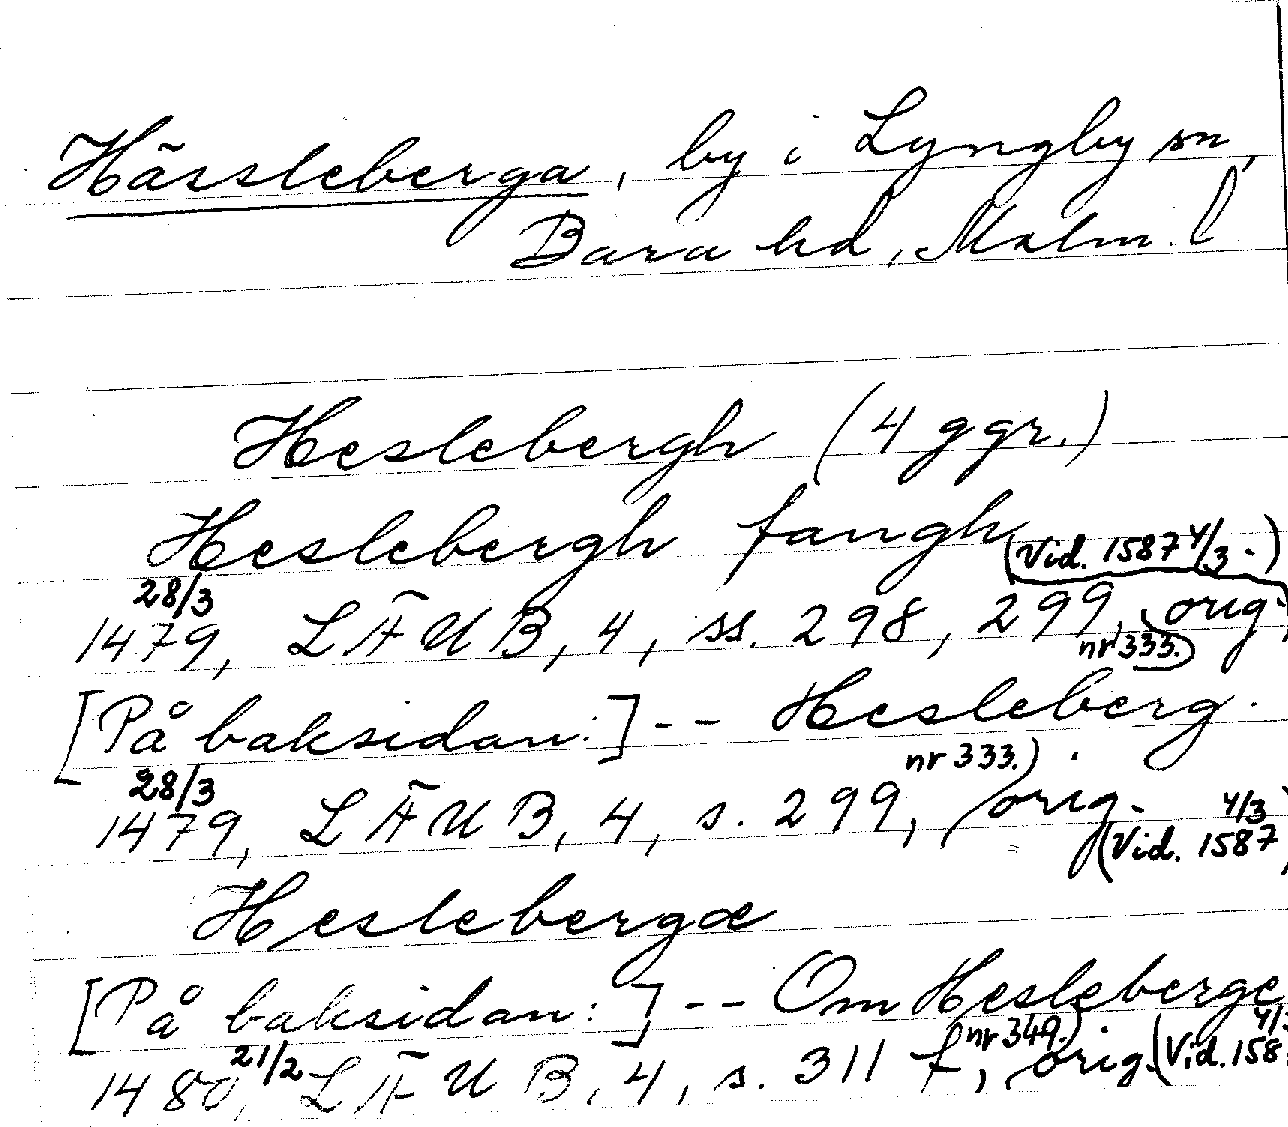 Hässleberga, by i Lyngby sn,
Bara hd, Malm. l
Heslebergh (4 ggr.)
Heslebergh fangh
(Vid. 1587 4/3.)
28/3
1479, LÄUB, 4, ss. 298, 299, orig.
nr 333.)
[På baksidan:] -- Hesleberg.
nr 333.).
28/3
1479, LÄUB, 4, s. 299, orig.
4/3
(Vid. 1587
Heslebergæ
[På baksidan:] -- Om Hesleberge
nr 349.).
21/2
1480, LÄUB, 4, s. 311 f, orig.
(Vid. 158